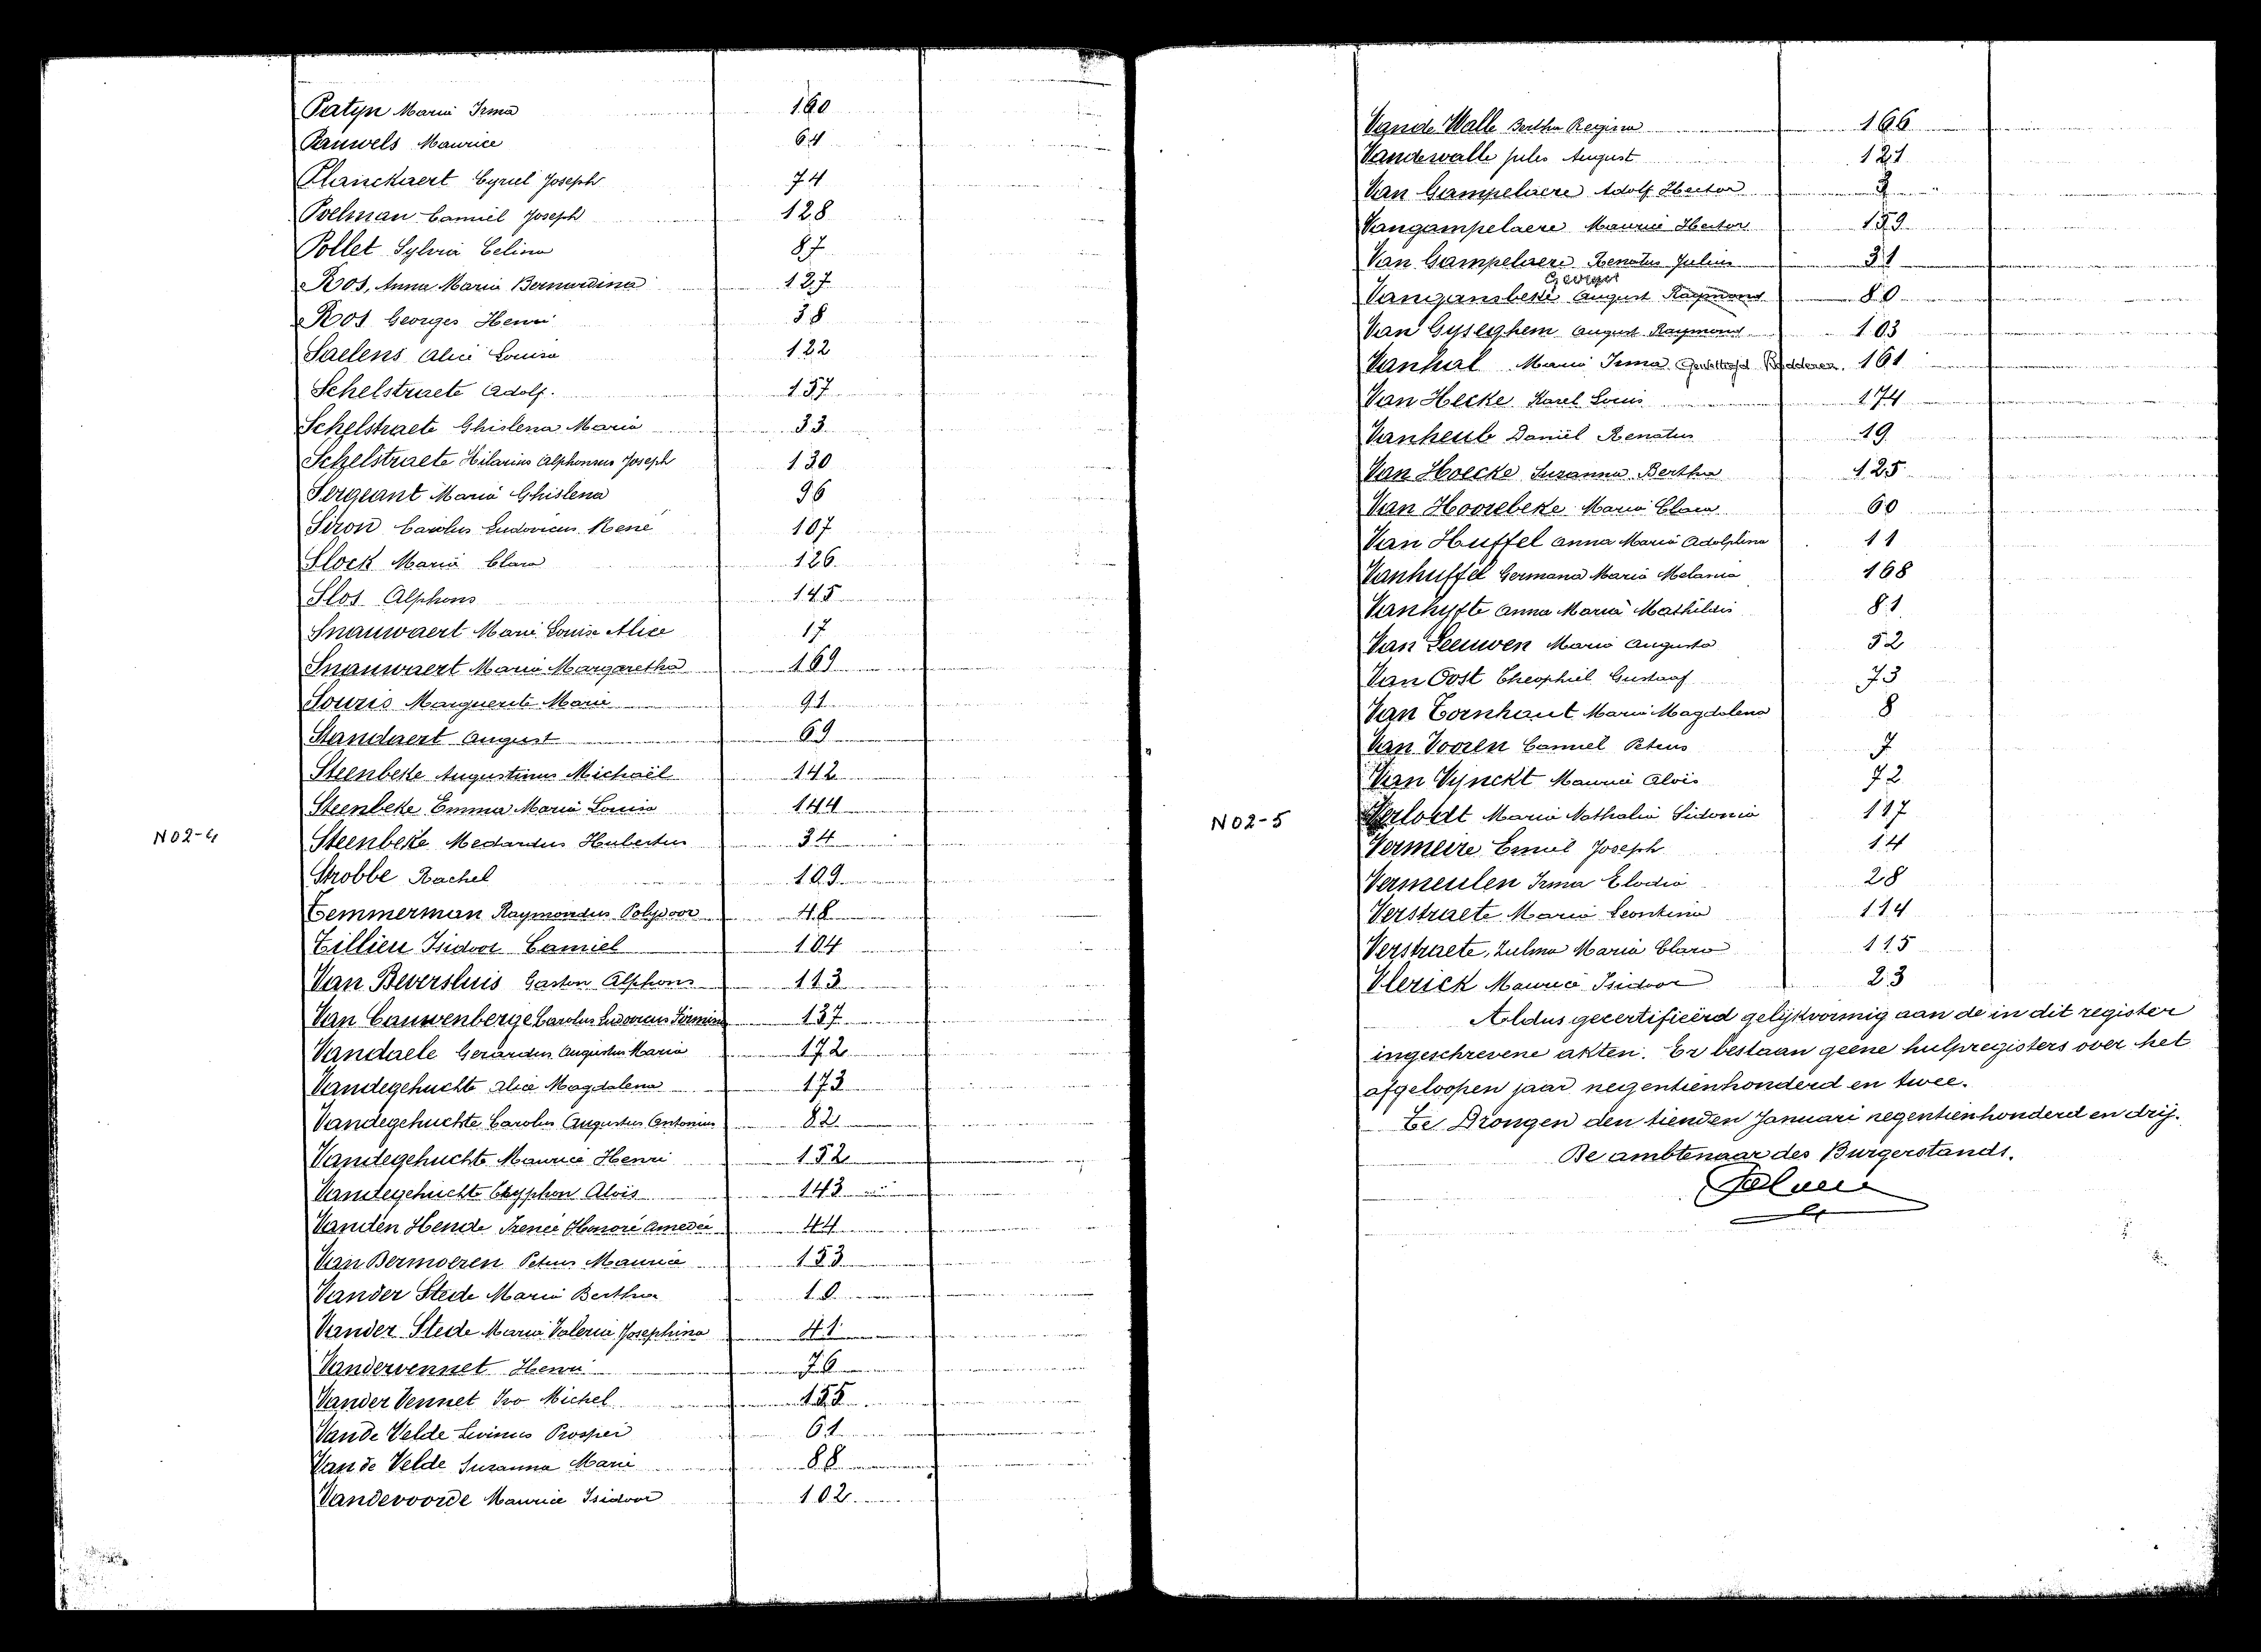 Patijn Maria Irma 160
Pauwels Maurice 64
Planckaert Cyriel Joseph 74
Poelman Camiel Joseph 128
Pollet Sylvia Celina 87
Ros, Anna Maria Bernardina 127
Ros Georges Henri 38
Saelens Alice Louisa 122
Schelstraete Adolf. 157
Schelstraete Ghislena Maria 33
Schelstraete Hilarius Alphonsus Joseph 130
Sergeant Maria Ghislena 96
Siron Carolus Ludovicus René 107
Slock Maria Clara 126
Slos Alphons 145
Snauwaert Marie Louise Alice 17
Snauwaert Maria Margaretha 169
Souris Marguerite Marie 91
Standaert August 69
Steenbeke Augustinus Michaël 142
Steenbeke Emma Maria Louisa 144
N02-4
Steenbeke Medardus Hubertus 34
Strobbe Rachel 109
Temmerman Raymondus Polydoor 48
Tillieu Isidoor Camiel 104
Van Beversluis Gaston Alphons 113
Van Cauwenberge Carolus Ludovicus Firminus 137
Vandaele Gerardus Augustus Maria 172
Vandegehuchte Alice Magdalena 173
Vandegehuchte Carolus Augustus Antonius 82
Vandegehuchte Maurice Henri 152
Vandegehuchte Alois 143
Vanden Hende Irenée Honoré Amedée 44
Van Dermoeren Petrus Maurice 153
Vander Stede Maria Bertha 10
Vander Stede Maria Valeria Josephina 41
Vandervennet Henri 76
Vander Vennet Ivo Michel 155
Van de Velde Livinus Prosper 61
Van de Velde Susanna Marie 88
Vandevoorde Maurice Isidoor 102
Vande Walle Bertha Regina 166
Vandewalle Jules August 121
Van Gampelaere Adolf Hector 2
Vangampelaere Maurice Hector 159
Van Gampelaere Renatus Julius 31
Georges
Vangansbeke August Raymond 80
Van Gyseghem August Raymond 103
Vanhal Maria Irma 161
Van Hecke Karel Louis 174
Vanheule Daniël Renatus 19
Van Hoecke Suzanna Bertha 125
Van Hoorebeke Maria Clara 60
Van Huffel Anna Maria Adolphina 11
Vanhuffel Germana Maria Melania 168
Vanhyfte Anna Maria Mathildis 81
Van Leeuwen Maria Augusta 52
Van Oost Theophiel Gustaaf 73
Van Tornhaut Maria Magdalena 8
Van Vooren Camiel Petrus 7
Van Vynckt Maurice Alois 72
N02-5
Verloedt Maria Nathalia Sidonia 117
Vermeire Emiel Joseph 14
Vermeulen Irma Elodia 28
Verstraete Maria Leontina 114
Verstraete, Zulma Maria Clara 115
Vlerick Maurice Isidoor 23
Aldus gecertificeerd gelijkvormig aan de in dit register
ingeschrevene akten. Er bestaan geene hulpregisters over het
afgeloopen jaar negentienhonderd en twee.
Te Drongen den tienden Januari negentienhonderd en drij.
De ambtenaar des Burgerstands.